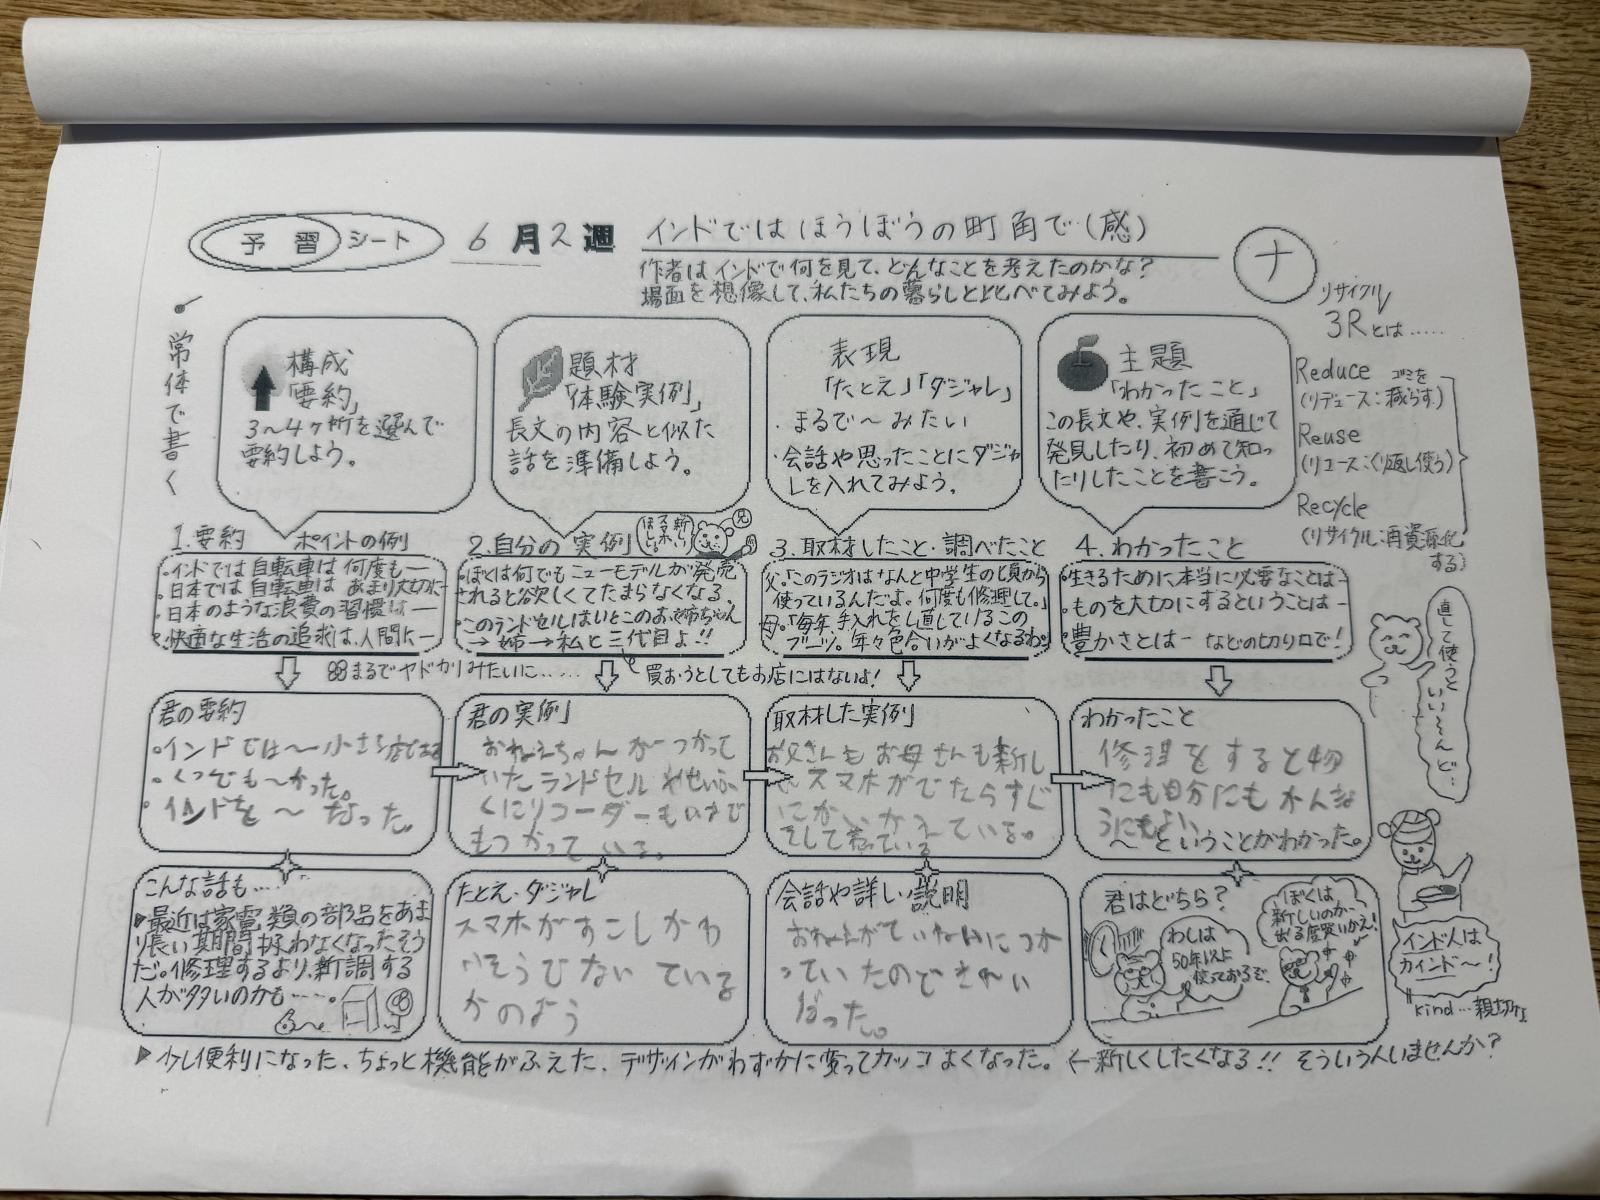 予習シート 6月2週 インドではほうぼうの町角で(感)
ナ
作者はインドで何を見て、どんなことを考えたのかな?
場面を想像して、私たちの暮らしとくらべてみよう。
常体で書く
構成
「要約」
3～4ヶ所を選んで
要約しよう。
題材
「体験実例」
長文の内容と似た
話を準備しよう。
表現
「たとえ」「ダジャレ」
・まるで～みたい
・会話や思ったことにダジャ
レを入れてみよう。
主題
「わかったこと」
この長文や、実例を通じて
発見したり、初めて知っ
たりしたことを書こう。
リサイクル
3Rとは……
Reduce ゴミを
(リデュース:減らす)
Reuse
(リユース:くり返し使う)
Recycle
(リサイクル:再資源化
する)
1.要約 ポイントの例
・インドでは自転車は何度も―
・日本では自転車はあまり大切に―
・日本のような浪費の習慣は―
・快適な生活の追求は、人間に―
2.自分の実例
新しい
ほしい
兄
・ぼくは何でもニューモデルが発売
されると欲しくてたまらなくなる。
・このランドセルはいとこのお姉ちゃん
→姉→私と三代目よ!!
3.取材したこと・調べたこと
父.「このラジオはなんと中学生の頃から
使っているんだよ。何度も修理して。」
母.「毎年手入れをし直しているこの
ブーツ。年々色合いがよくなるわ。
4.わかったこと
・生きるために本当に必要なことは―
・ものを大切にするということは―
・豊かさとは― などの切り口で!
まるでヤドカリみたいに……
買おうとしてもお店にはないよ!
直して使うと
いい～んど…
君の要約
・インドでは～小さな店である
・くつでも～かった。
・インドを～だった。
君の実例
おねえちゃんがつかって
いたランドセルやせいふ
くにリコーダーもいまで
もつかっている。
取材した実例
お父さんもお母さんも新し
いスマホがでたらすぐ
にかいかえている。
そして
わかったこと
修理をすると物
にも自分にもかんきょ
うにもよい
～ということがわかった。
こんな話も…
▶最近は家電類の部品をあま
り長い期間扱わなくなったそう
だ。修理するより、新調する
人が多いのかも…。
たとえ・ダジャレ
スマホがすこしかわ
いそうでない ている
かのよう
会話や詳しい説明
おねえがていねいにつか
っていたのできれい
だった。
君はどちら?
わしは
50年以上
使っておるで、
ぼくは
新しいのが
出る度買いかえ!
インド人は
カインド～!
kind…親切な
▶少し便利になった、ちょっと機能がふえた、デザインがわずかに変ってカッコよくなった。←新しくしたくなる!! そういう人いませんか?